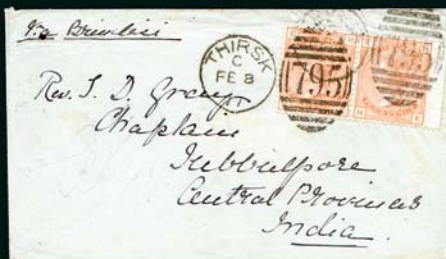 Via Brindisi
THIRSK
C
FE 8
795
795
Rev. S. D. Grange
Chaplain
Jubbulpore
Central Provinces
India